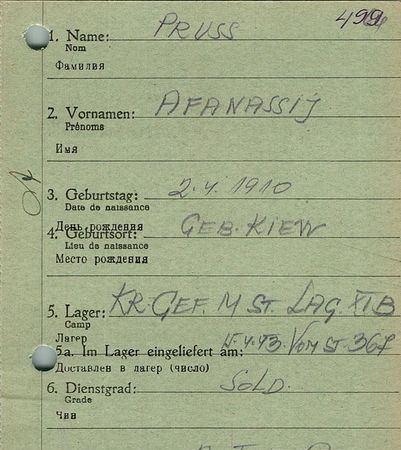 499
1. Name: PRUSS
Nom
Фамилия
2. Vornamen: AFANASSIJ
Prénoms
Имя
3. Geburtstag: 2.4.1910
Date de naissance
День рождения
4. Geburtsort: GEB. KIEW
Lieu de naissance
Место рождения
5. Lager: KR. GEF. M ST. LAG XI B
Camp
Лагер
5a. Im Lager eingeliefert am: 4.43. VOM ST. 367
Доставлен в лагер (число)
6. Dienstgrad: SOLD.
Grade
Чин